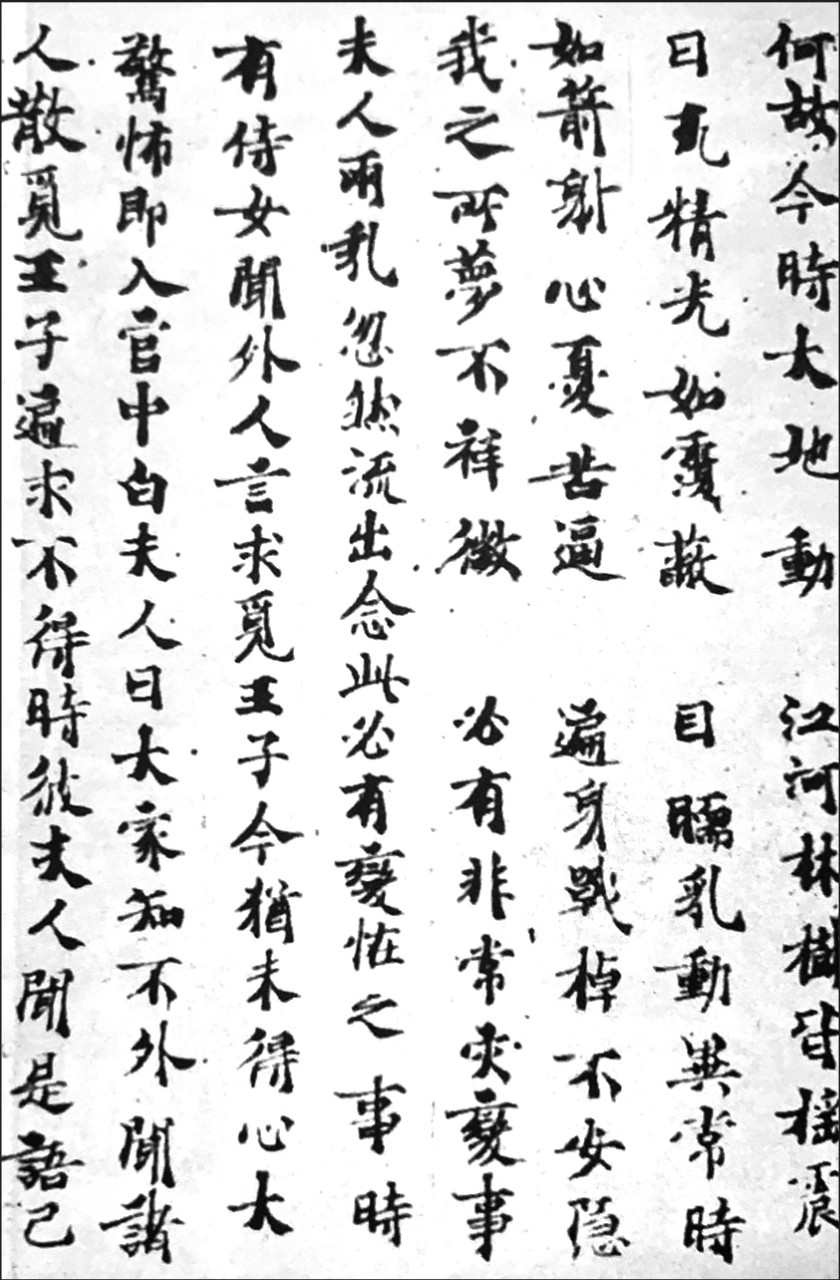 何故今時大地動 江河林樹皆搖震
日无精光如覆蔽 目瞤乳動異常時
如箭射心憂苦逼 遍身戰掉不安隱
我之所夢不祥徵 必有非常灾變事
夫人兩乳忽然流出念此必有變恠之事時
有侍女聞外人言求覓王子今猶未得心大
驚怖即入宮中白夫人曰大家知不外聞諸
人散覓王子遍求不得時彼夫人聞是語已